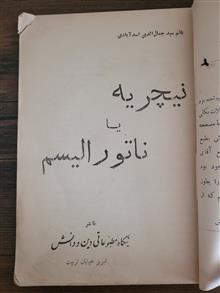 بقلم سید جمال الدین اسدآبادی
نیچریه
یا
ناتورالیسم
ناشر
بنگاه مطبوعاتی دین و دانش
تبریز خیابان تربیت